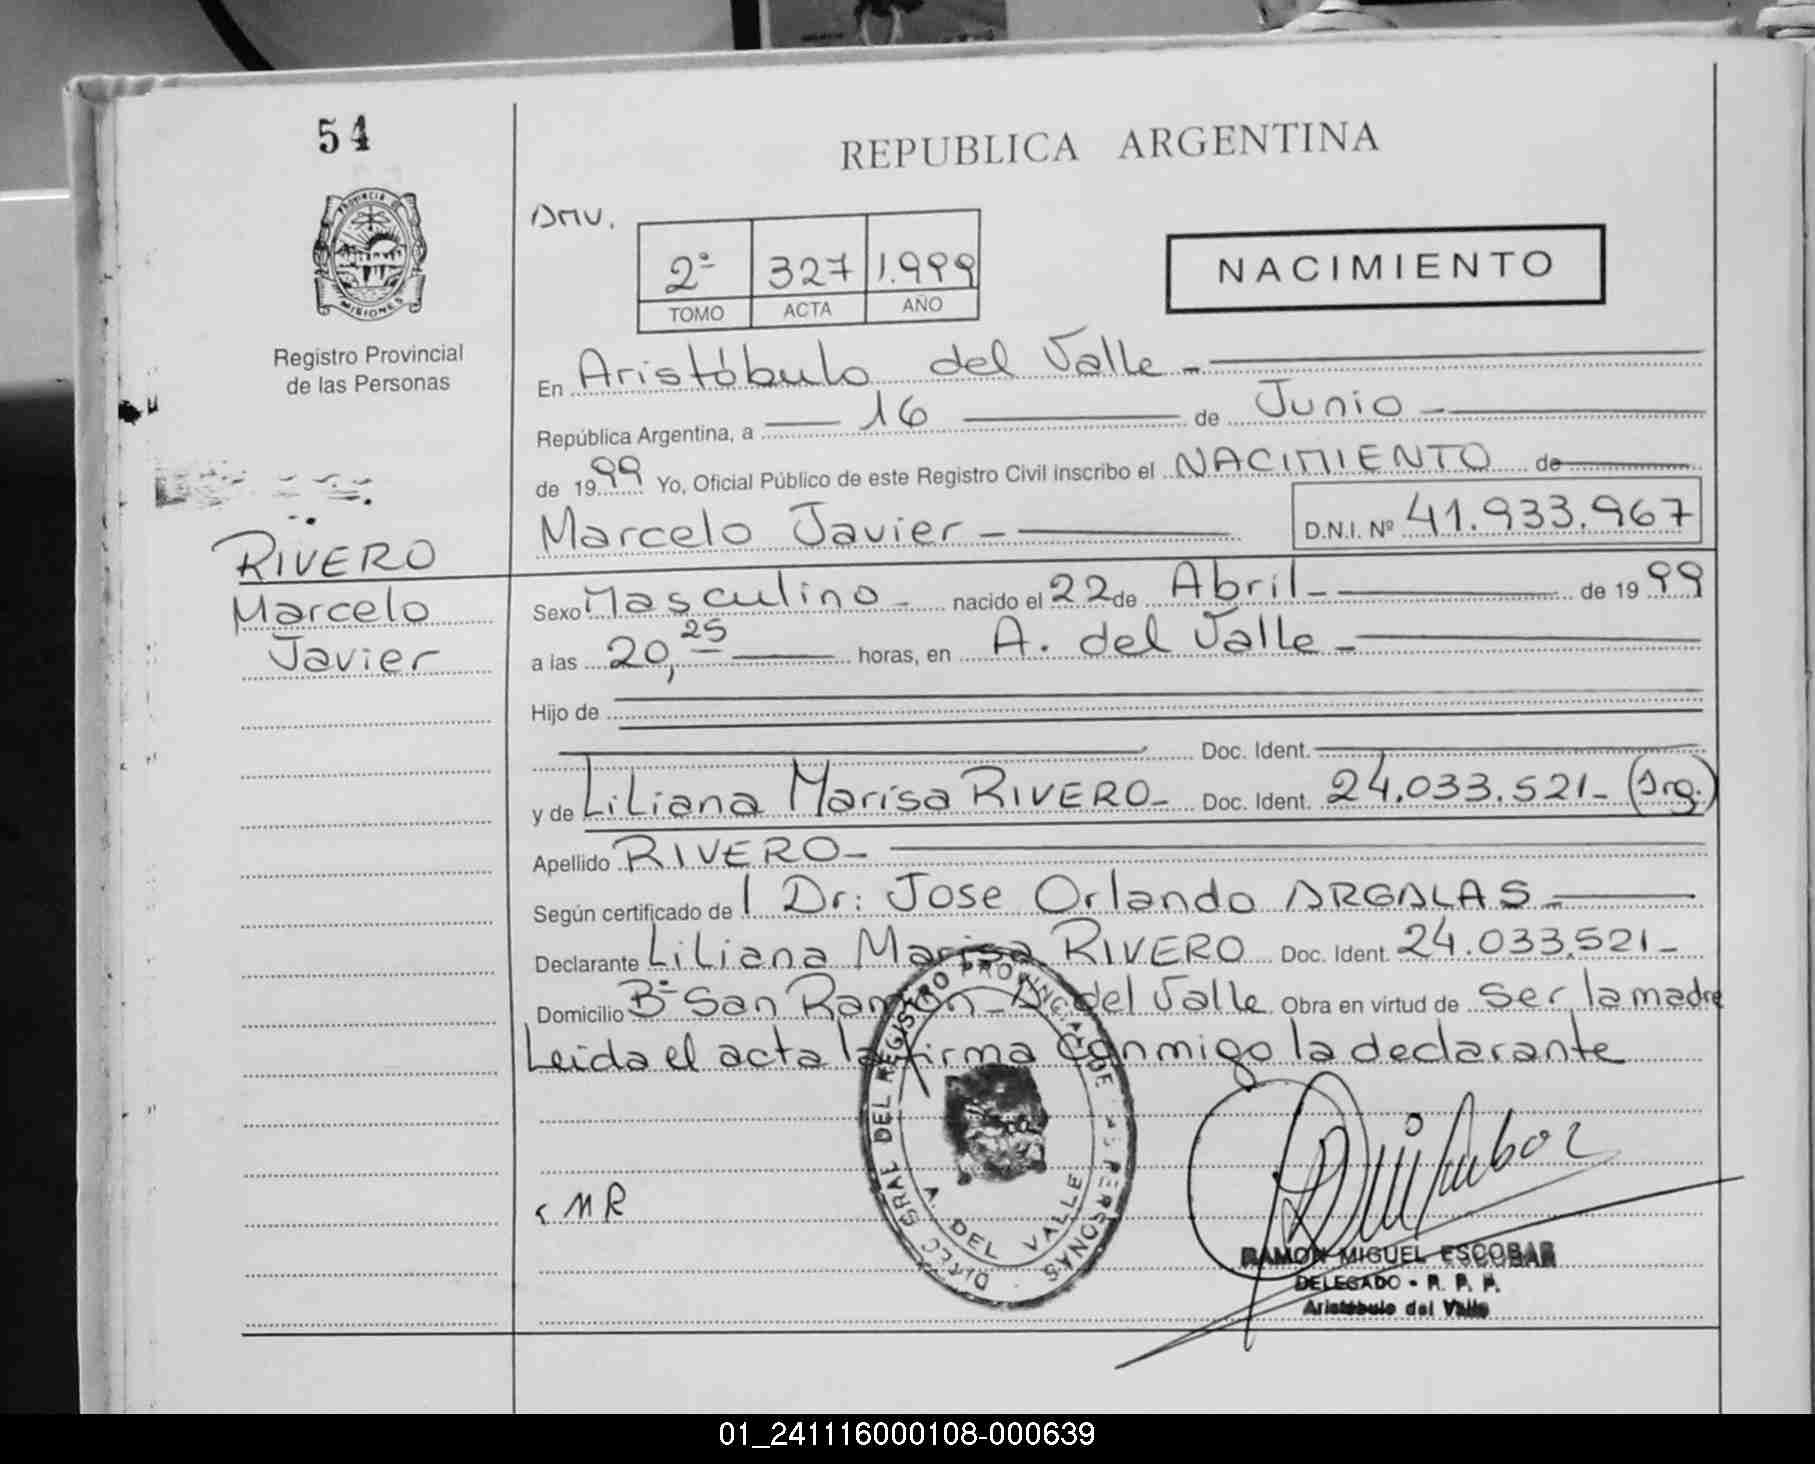 54
REPUBLICA ARGENTINA
PROVINCIA DE
MISIONES
Registro Provincial
de las Personas
AMV.
2º 327 1.999
TOMO ACTA AÑO
NACIMIENTO
En Aristóbulo del Valle -
República Argentina, a 16 de Junio -
de 1999 Yo, Oficial Público de este Registro Civil inscribo el NACIMIENTO de
Marcelo Javier - D.N.I. Nº 41.933.967
RIVERO
Marcelo
Javier
Sexo Masculino - nacido el 22 de Abril - de 1999
a las 20,25 horas, en A. del Valle -
Hijo de
Doc. Ident.
y de Liliana Marisa RIVERO - Doc. Ident. 24.033.521 - (Arg.)
Apellido RIVERO -
Según certificado de l Dr: Jose Orlando ARGALAS -
Declarante Liliana Marisa RIVERO Doc. Ident. 24.033.521 -
Domicilio Bº San Ramón - A. del Valle Obra en virtud de ser la madre
Leida el acta la firma conmigo la declarante
DIREC. GRAL DEL REGISTRO PROVINCIAL DE LAS PERSONAS
A. DEL VALLE
MR
RAMON MIGUEL ESCOBAR
DELEGADO - R. P. P.
Aristóbulo del Valle
01_241116000108-000639